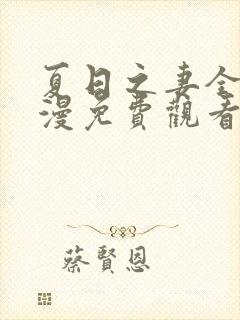 夏日之妻全
漫免費觀看
蔡賢恩